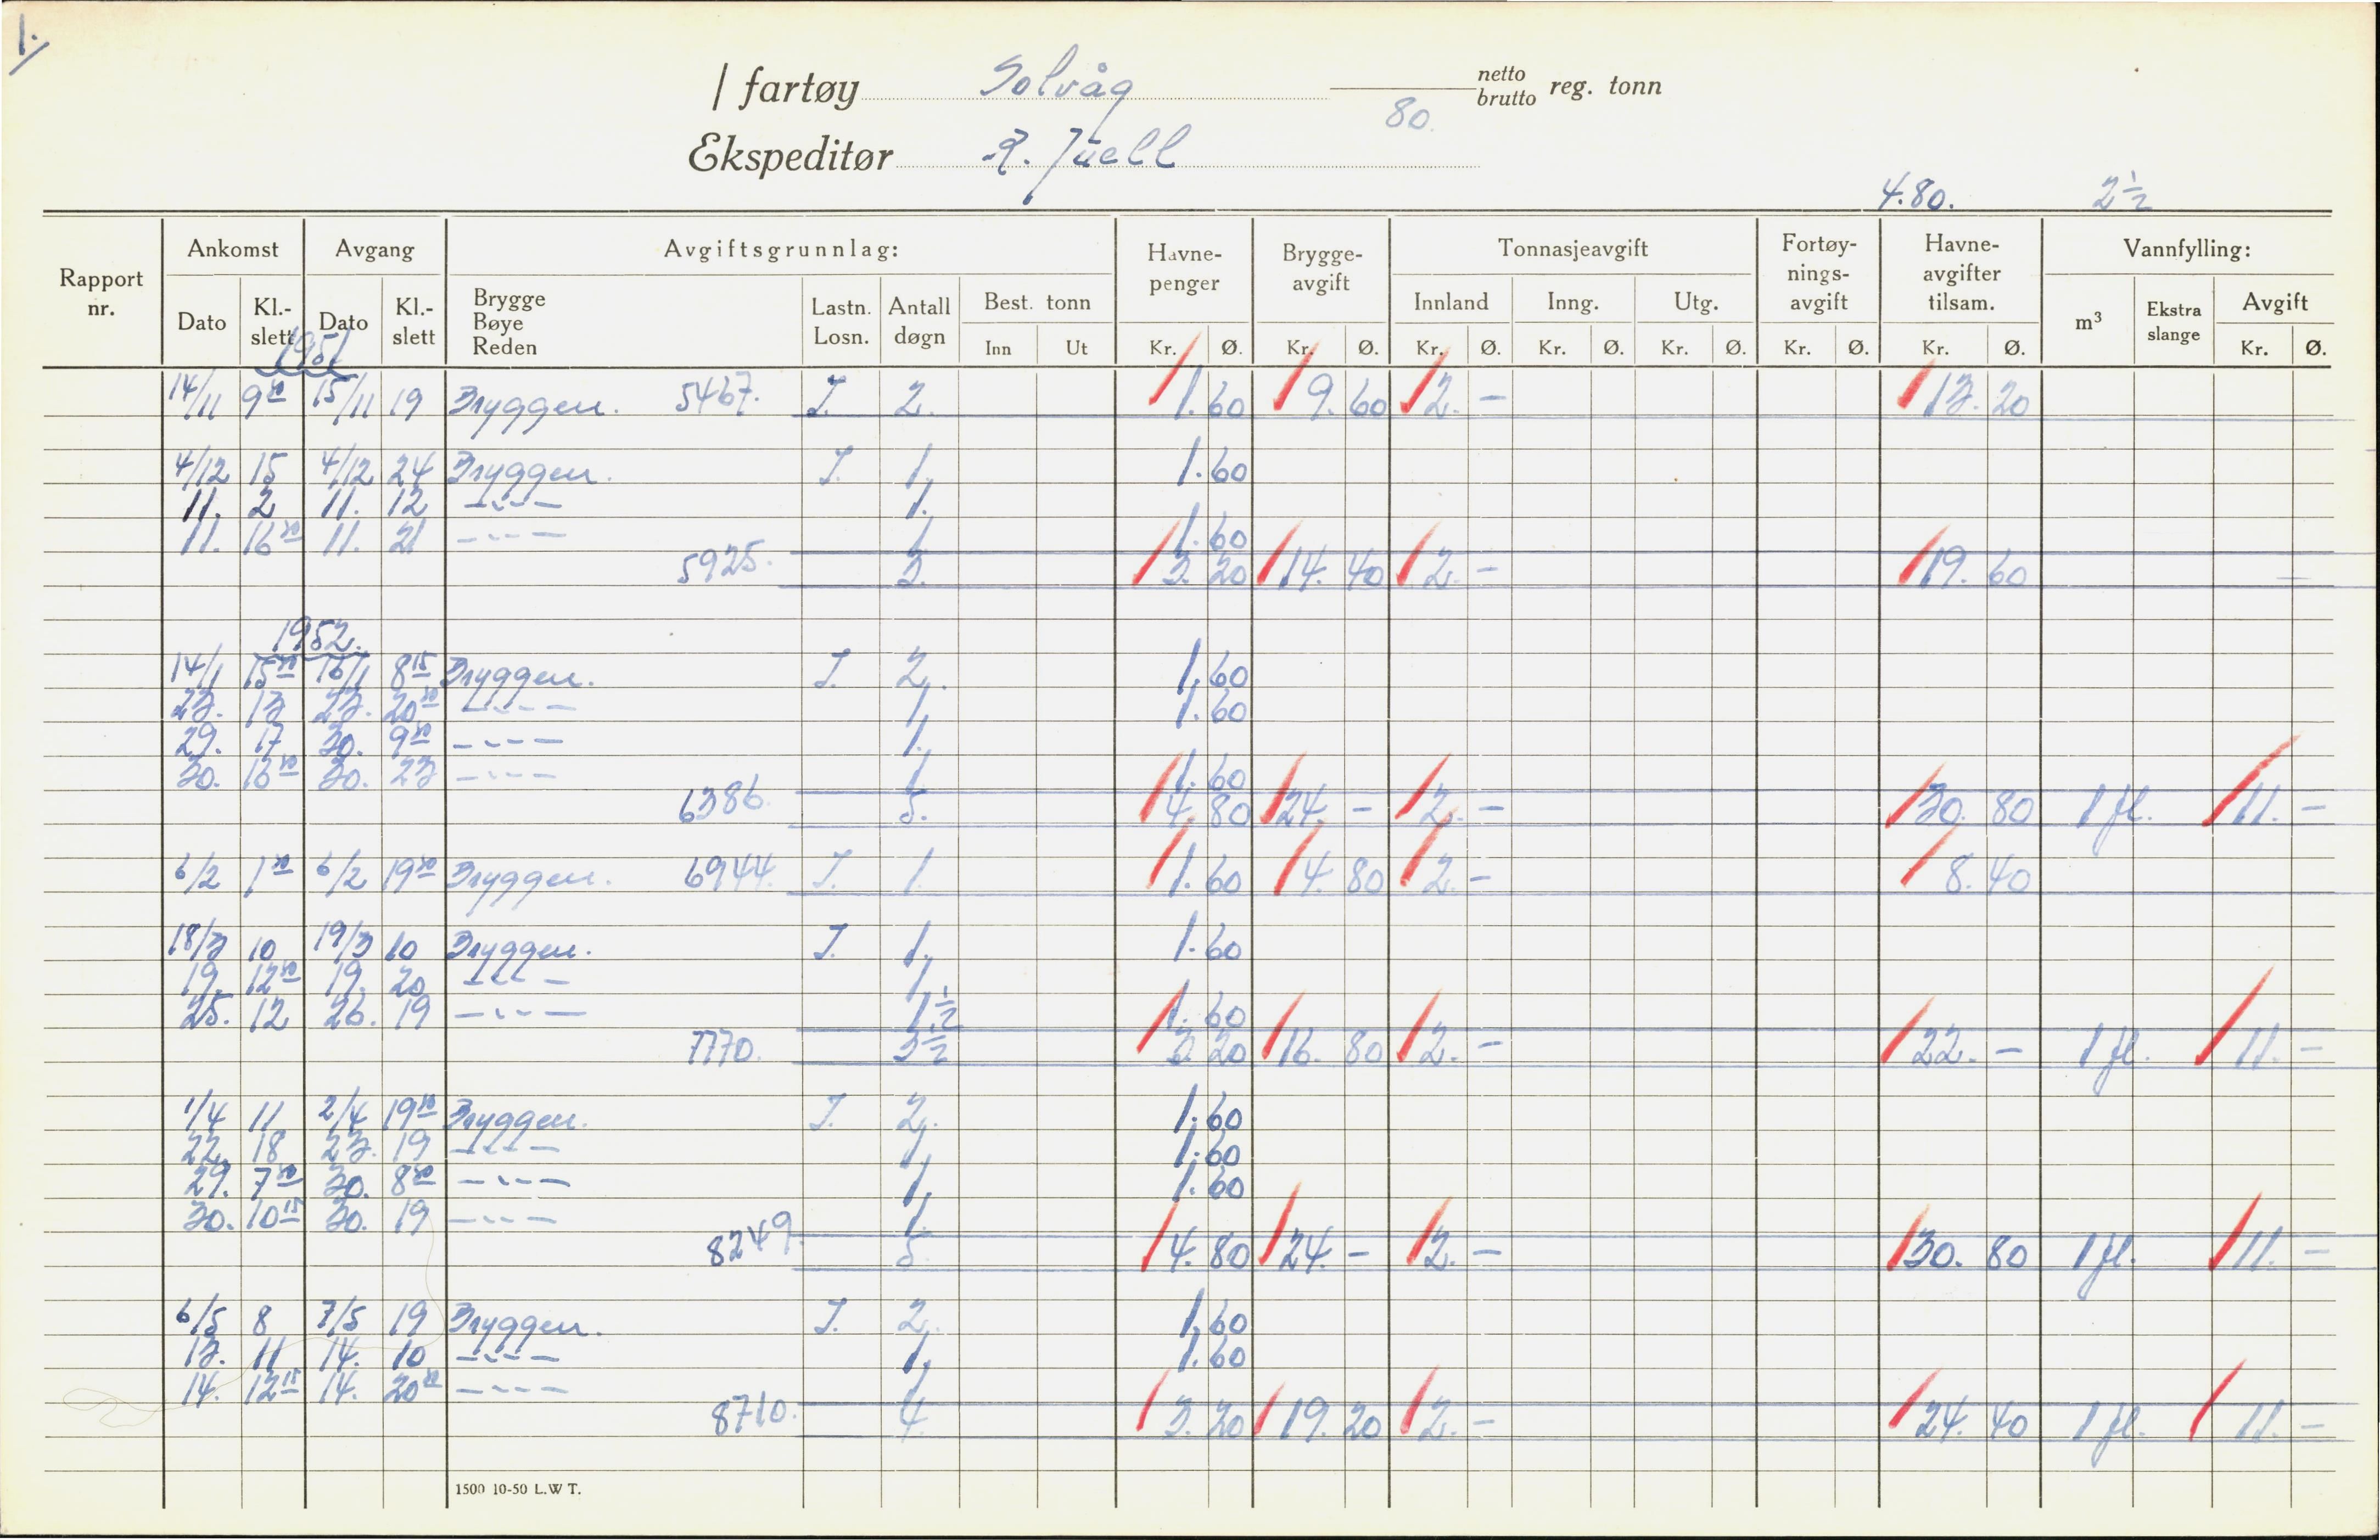 1.
/ fartøy Solvåg 80. netto brutto reg. tonn
Ekspeditør R. Juell
4.80. 2½
Rapport nr. Ankomst Avgang Avgiftsgrunnlag: Havne-penger Brygge-avgift Tonnasjeavgift Fortøy-nings-avgift Havne-avgifter tilsam. Vannfylling:
Dato Kl.-slett Dato Kl.-slett Brygge Bøye Reden Lastn. Losn. Antall døgn Best. tonn Innland Inng. Utg. m³ Ekstra slange Avgift
Inn Ut Kr. Ø. Kr. Ø. Kr. Ø. Kr. Ø. Kr. Ø. Kr. Ø. Kr. Ø. Kr. Ø.
1951
14/11 9³⁰ 15/11 19 Bryggen. 5467. I. 2. 1.60 9.60 2. - 13.20
4/12 15 4/12 24 Bryggen. I. 1. 1.60
11. 2 11. 12 -"- 1.
11. 16³⁰ 11. 21 -"- 1 1.60
5925. 3. 3.20 14.40 2. - 19.60
1952.
14/1 15³⁰ 16/1 8¹⁵ Bryggen. I. 2. 1.60
23. 13 23. 20³⁰ -"- 1. 1.60
29. 17 30. 9³⁰ -"- 1.
30. 16³⁰ 30. 23 -"- 1 1.60
6386. 5. 4.80 24. - 2. - 30.80 1 fl. 11. -
6/2 1³⁰ 6/2 19³⁰ Bryggen. 6944. I. 1. 1.60 4.80 2. - 8.40
18/3 10 19/3 10 Bryggen. I. 1. 1.60
19. 12³⁰ 19. 20 -"- 1
25. 12 26. 19 -"- 1½ 1.60
7770. 3½ 3.20 16.80 2. - 22. - 1 fl. 11. -
1/4 11 2/4 19³⁰ Bryggen. I. 2. 1.60
22. 18 23. 19 -"- 1. 1.60
29. 7³⁰ 30. 8³⁰ -"- 1. 1.60
30. 10¹⁵ 30. 19 -"- 1.
8249. 5. 4.80 24. - 2. - 30.80 1 fl. 11. -
6/5 8 7/5 19 Bryggen. I. 2. 1.60
13. 11 14. 10 -"- 1. 1.60
14. 12¹⁵ 14. 20³⁰ -"- 1
8710. 4. 3.20 19.20 2. - 24.40 1 fl. 11. -
1500 10-50 L.W T.